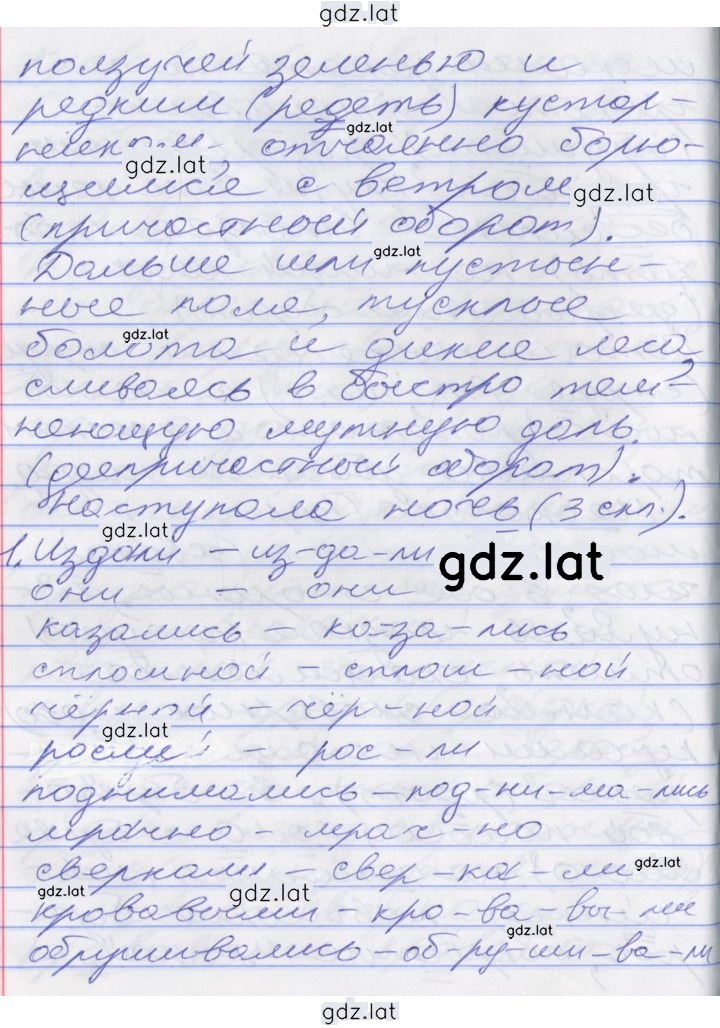 gdz.lat
ползучей зеленью и
редким (редеть) кустар-
gdz.lat
никами, отчаянно борю-
gdz.lat
щимися с ветром
gdz.lat
(причастный оборот).
gdz.lat
Дальше шли пустын-
ные поля, тусклые
gdz.lat
болота и дикие леса,
сливаясь в быстро тем-
неющую мутную даль.
(деепричастный оборот).
Наступала ночь (3 скл.).
gdz.lat
1. Издали – из-да-ли
gdz.lat
они – они
казались – ка-за-лись
сплошной – сплош-ной
чёрной – чёр-ной
gdz.lat
росли – рос-ли
поднимались – под-ни-ма-лись
мрачно – мрач-но
сверкали – свер-ка-ли
gdz.lat
gdz.lat
gdz.lat
кровавыми – кро-ва-вы-ми
gdz.lat
обрушивались – об-ру-ши-ва-ли
gdz.lat